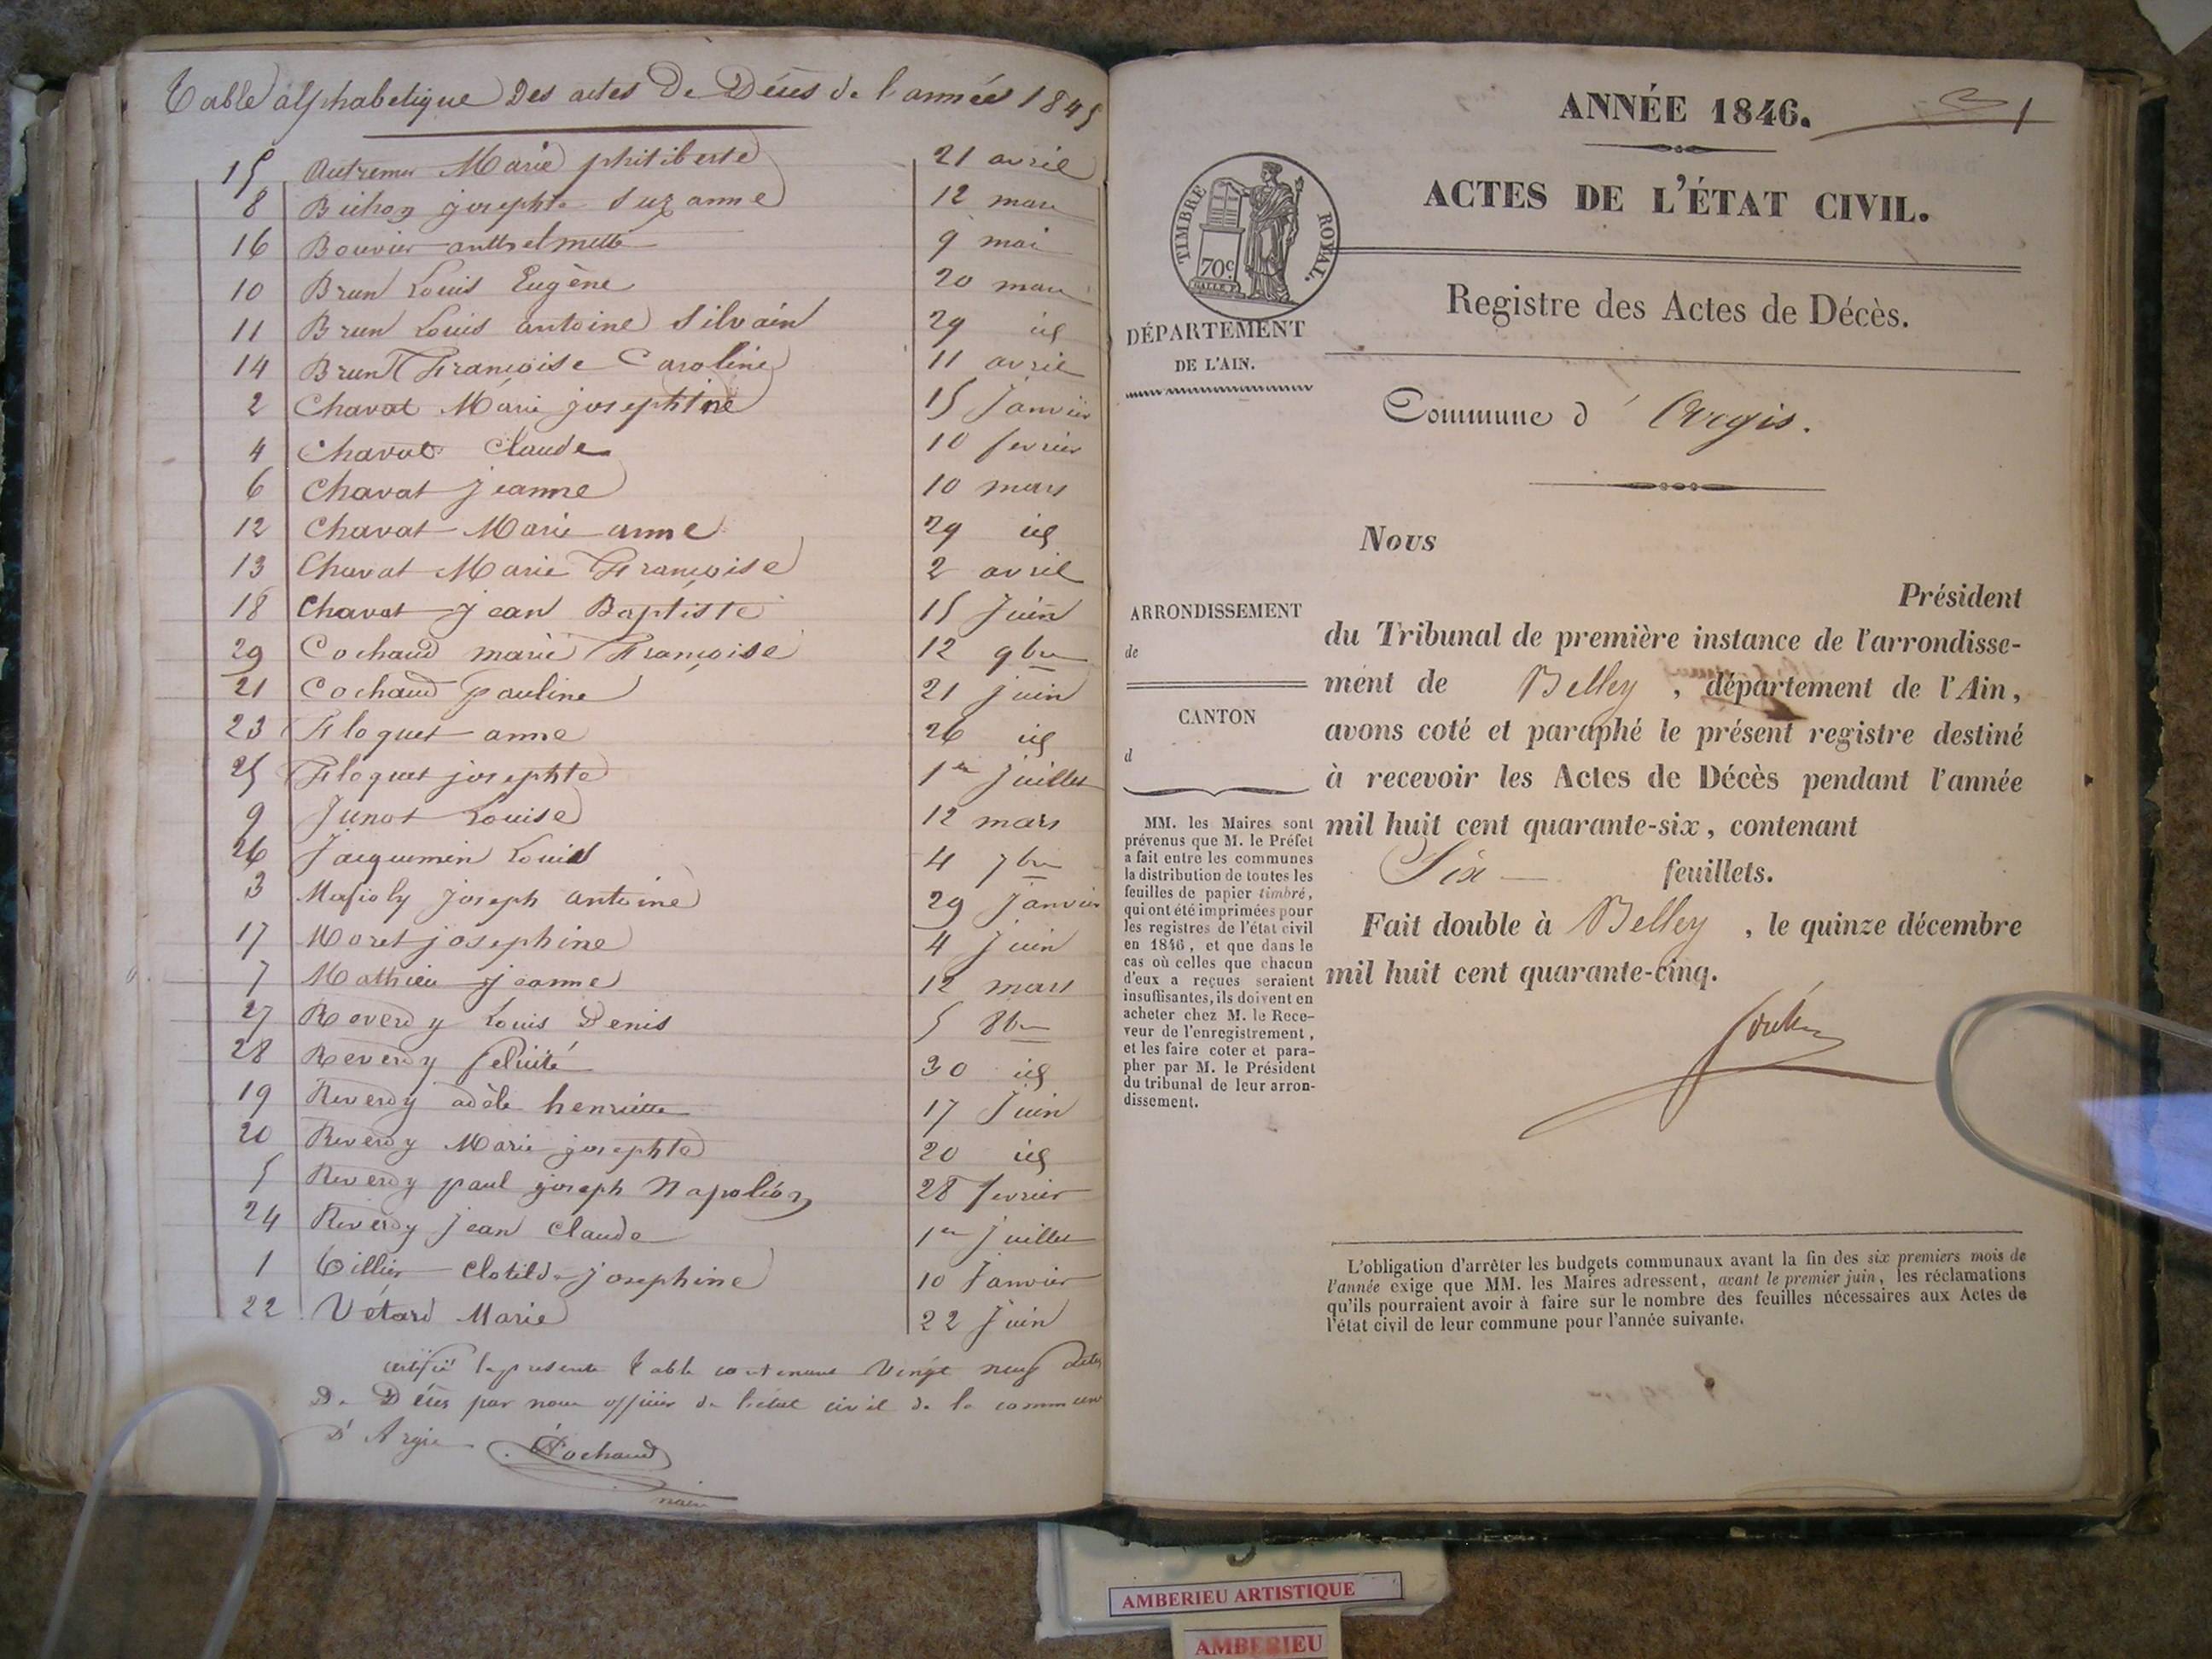 Table alphabetique Des actes De Décès de l'année 1845
15 Autremer Marie philiberte 21 avril
8 Bichon josephte Suzanne 12 mars
16 Bouvier anthelmette 9 mai
10 Brun Louis Eugène 20 mars
11 Brun Louis antoine Silvain 29 id
14 Brun Françoise Caroline 11 avril
2 Chavat Marie josephine 15 Janvier
4 Chavat Claude 10 fevrier
6 Chavat jeanne 10 mars
12 Chavat Marie anne 29 id
13 Chavat Marie Françoise 2 avril
18 Chavat jean Baptiste 15 Juin
29 Cochaud marie Françoise 12 9bre
21 Cochaud pauline 21 juin
23 Floquet anne 26 id
25 Floquet josephte 1er Juillet
9 Junot Louise 12 mars
26 Jacquemin Louis 4 7bre
3 Masioly joseph antoine 29 Janvier
17 Moret josephine 4 Juin
7 Mathieu jeanne 12 mars
27 Reverdy Louis Denis 5 8bre
28 Reverdy felicité 30 id
19 Reverdy adèle henriette 17 Juin
20 Reverdy Marie josephte 20 id
5 Reverdy paul joseph Napoléon 28 fevrier
24 Reverdy jean Claude 1er juillet
1 Tillier Clotilde josephine 10 Janvier
22 Vétard Marie 22 Juin
certifié la presente table contenant Vingt neuf actes
De Décès par nous officier de l'état civil de la commune
D'Argis Cochaud
maire
ANNÉE 1846.
1
ACTES DE L'ÉTAT CIVIL.
TIMBRE ROYAL.
70c.
Registre des Actes de Décès.
DÉPARTEMENT
DE L'AIN.
Commune d'Argis.
Nous
Président
ARRONDISSEMENT
de
CANTON
d
du Tribunal de première instance de l'arrondisse-
ment de Belley, département de l'Ain,
avons coté et paraphé le présent registre destiné
à recevoir les Actes de Décès pendant l'année
mil huit cent quarante-six, contenant
Six feuillets.
Fait double à Belley, le quinze décembre
mil huit cent quarante-cinq.
MM. les Maires sont
prévenus que M. le Préfet
a fait entre les communes
la distribution de toutes les
feuilles de papier timbré,
qui ont été imprimées pour
les registres de l'état civil
en 1846, et que dans le
cas où celles que chacun
d'eux a reçues seraient
insuffisantes, ils doivent en
acheter chez M. le Rece-
veur de l'enregistrement,
et les faire coter et para-
pher par M. le Président
du tribunal de leur arron-
dissement.
L'obligation d'arrêter les budgets communaux avant la fin des six premiers mois de
l'année exige que MM. les Maires adressent, avant le premier juin, les réclamations
qu'ils pourraient avoir à faire sur le nombre des feuilles nécessaires aux Actes de
l'état civil de leur commune pour l'année suivante.
AMBERIEU ARTISTIQUE
AMBERIEU